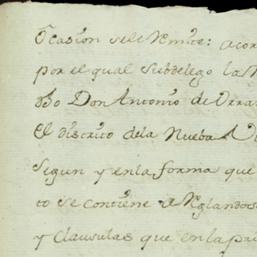 Ocasion se le remite: acor
por el qual Subdelego la
Dho Don Antonio de Urra
El districto dela Nueba
Segun y enla forma que
to se contiene
y Clausulas que en la pri